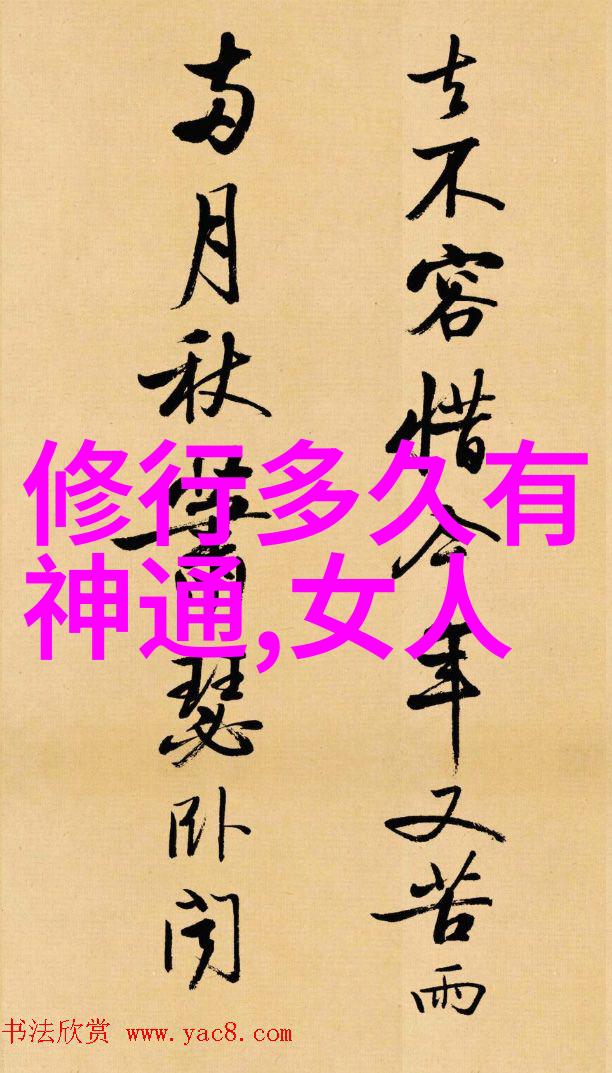 去不容惜今年又苦雨
两月秋萧瑟卧闻
修行多久有
神通,女人
书法欣赏 www.yac8.com